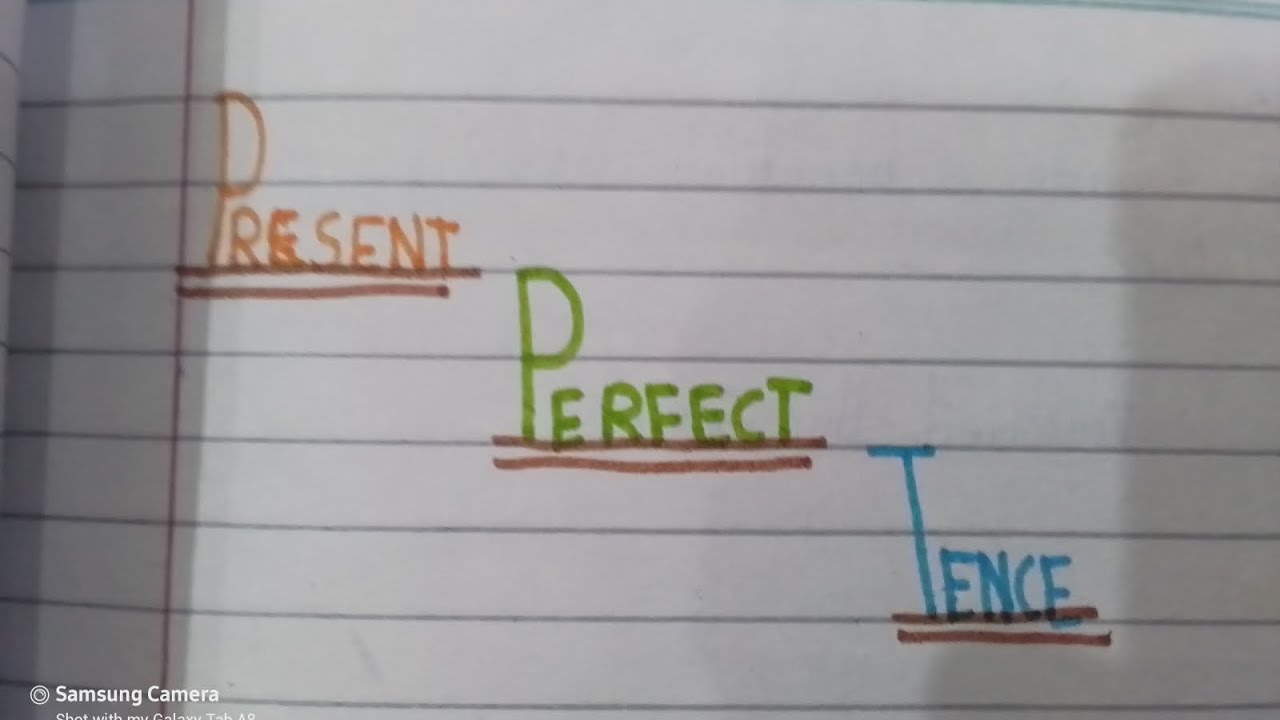 PRESENT
PERFECT
TENCE
Samsung Camera
Shot with my Galaxy Tab A8